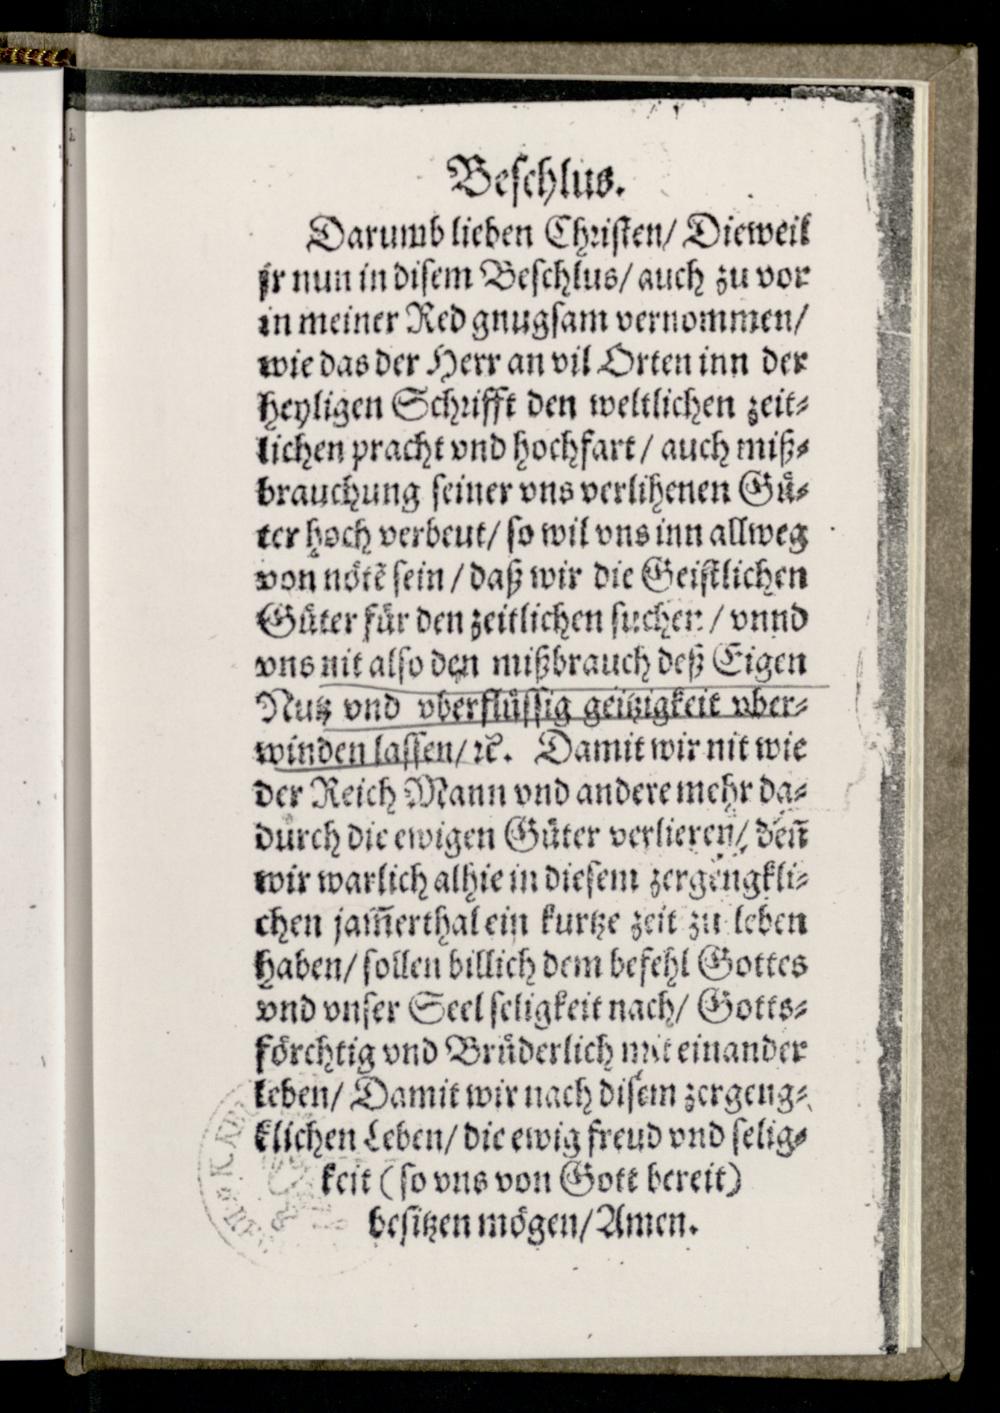 Beschlus.
Darumb lieben Christen/ Dieweil
jr nun in disem Beschlus/ auch zu vor
in meiner Red gnugsam vernommen/
wie das der Herr an vil Orten inn der
heyligen Schrifft den weltlichen zeit⸗
lichen pracht vnd hochfart/ auch miß⸗
brauchung seiner vns verlihenen Guͤ⸗
ter hoch verbeut/ so wil vns inn allweg
von noͤtẽ sein/ daß wir die Geistlichen
Guͤter fuͤr den zeitlichen suchen/ vnnd
vns nit also den mißbrauch deß Eigen
Nutz vnd vberfluͤssig geitzigkeit vber⸗
winden lassen/ ꝛc. Damit wir nit wie
der Reich Mann vnd andere mehr da⸗
durch die ewigen Guͤter verlieren/ deñ
wir warlich alhie in diesem zergengkli⸗
chen jam̃erthal ein kurtze zeit zu leben
haben/ sollen billich dem befehl Gottes
vnd vnser Seel seligkeit nach/ Gotts⸗
foͤrchtig vnd Bruͤderlich mit einander
leben/ Damit wir nach disem zergeng⸗
klichen Leben/ die ewig freud vnd selig⸗
keit (so vns von Gott bereit)
besitzen moͤgen/ Amen.